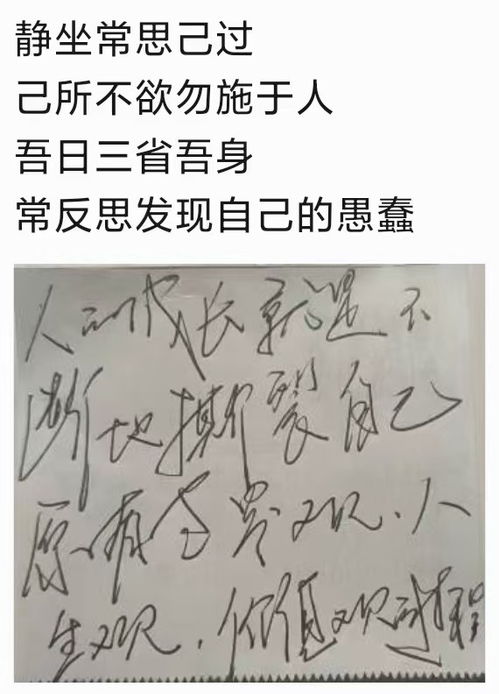 静坐常思己过
己所不欲勿施于人
吾日三省吾身
常反思发现自己的愚蠢
人的成长就是不
断地撕裂自己
原有世界观、人
生观、价值观的过程